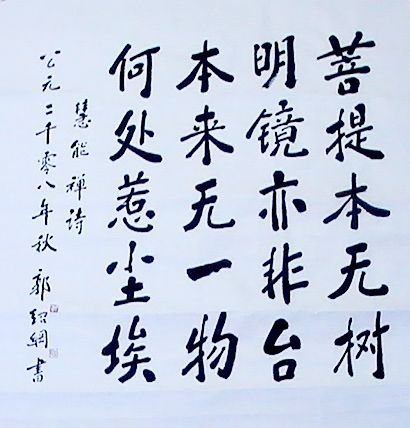 菩提本无树
明镜亦非台
本来无一物
何处惹尘埃
慧能禅诗
公元二千零八年秋郭绍纲书